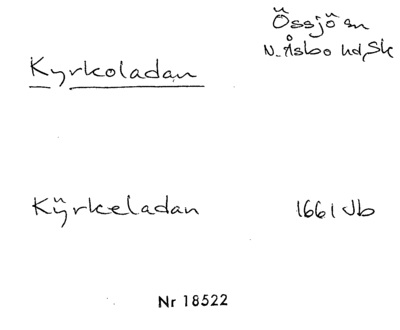 Össjö sn
N. Åsbo hd, Sk
Kyrkoladan
Kÿrkeladan 1661 Jb
Nr 18522